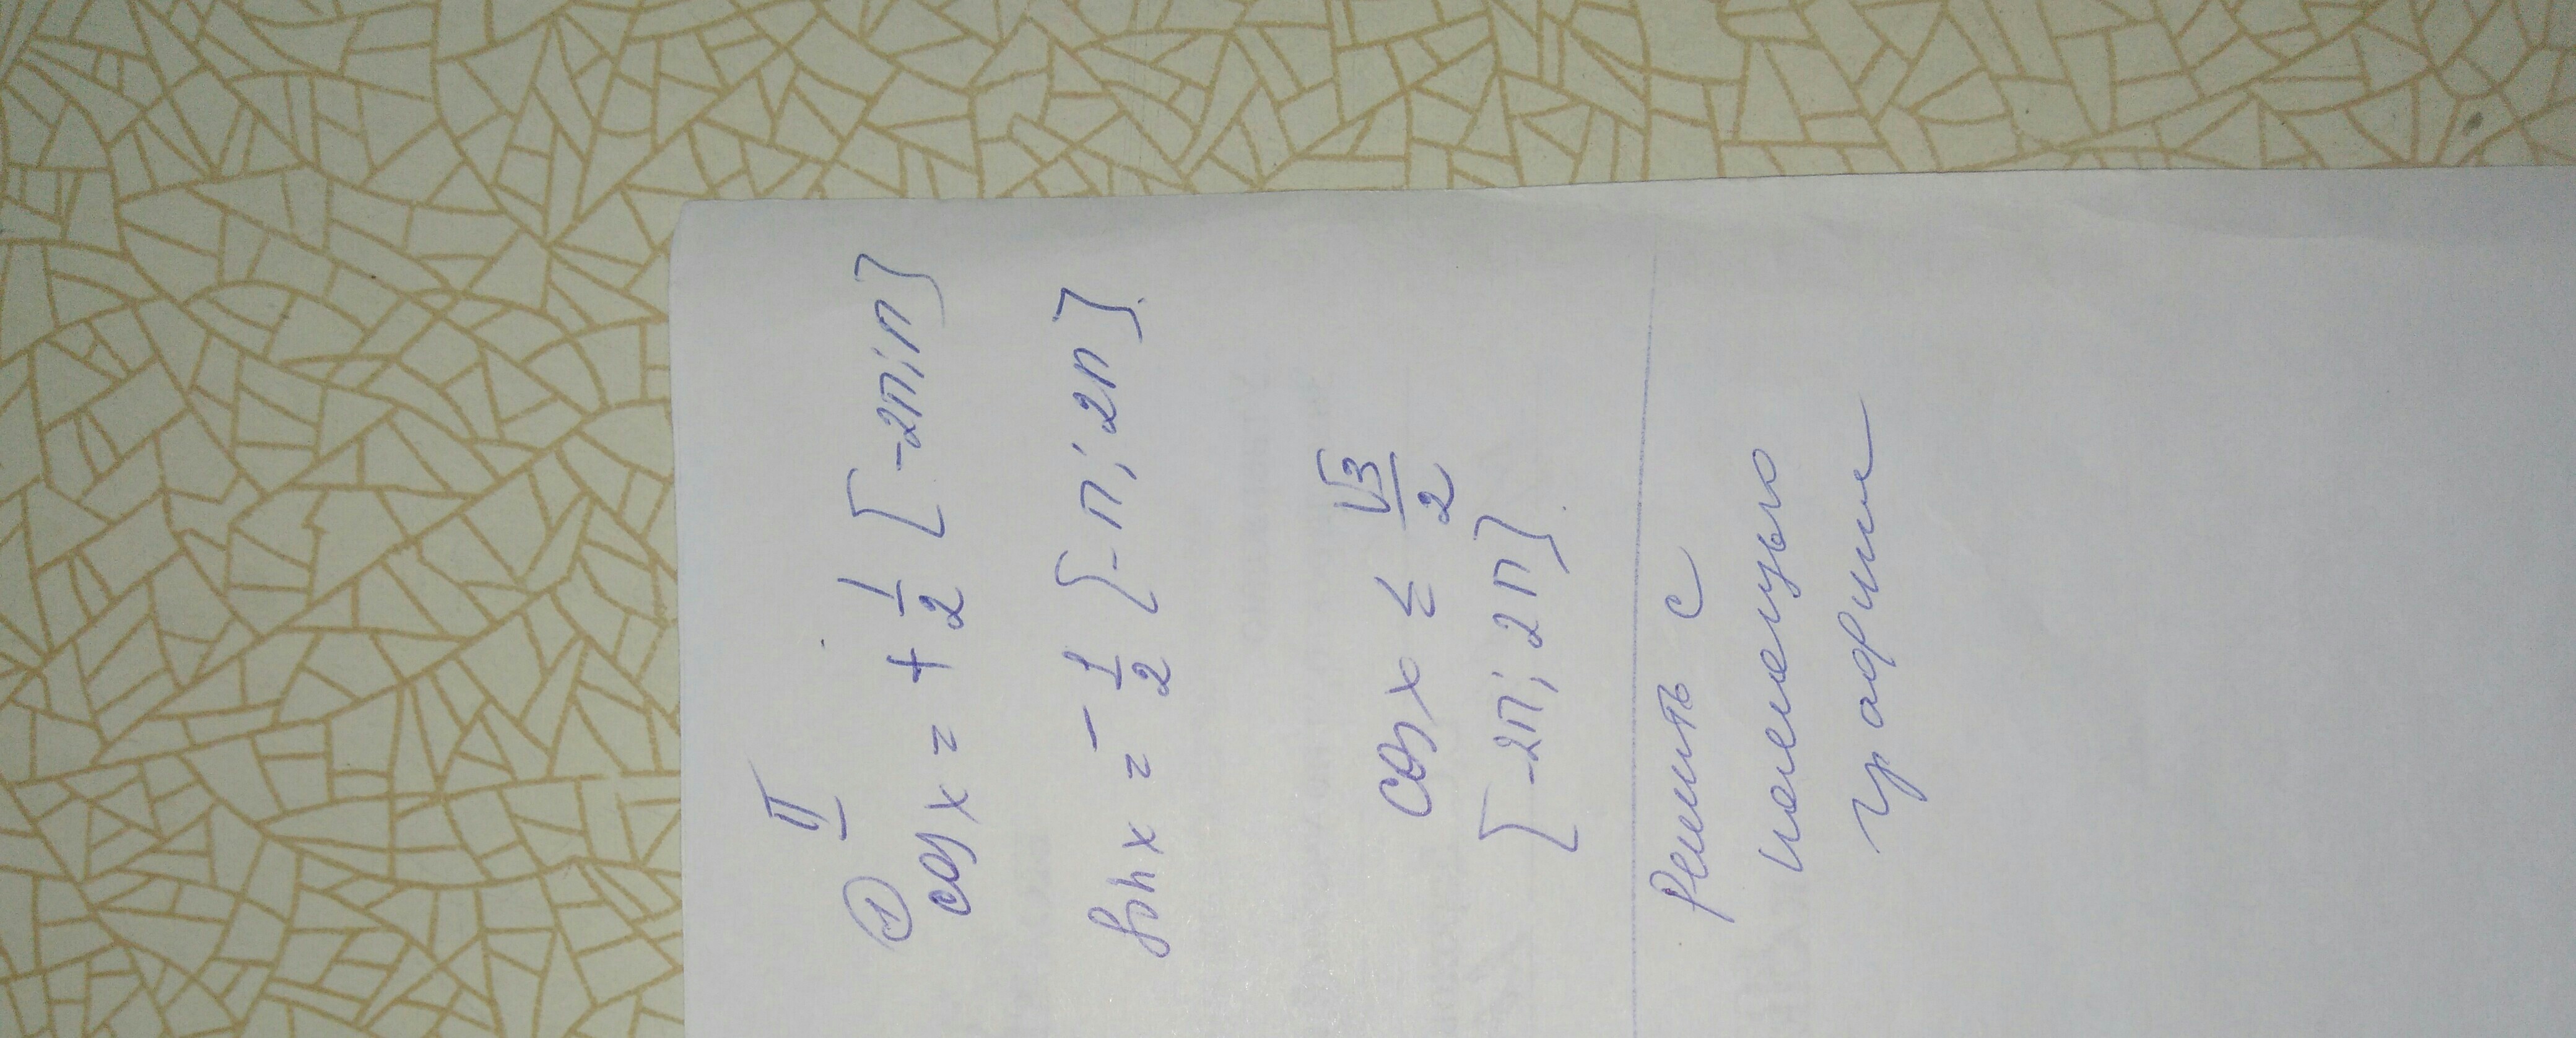 II
① cos x = + 1/2 [-2π; π]
sin x = - 1/2 [-π; 2π]
cos x ≤ √3/2
[-2π; 2π]
Решить с
помощью
графике